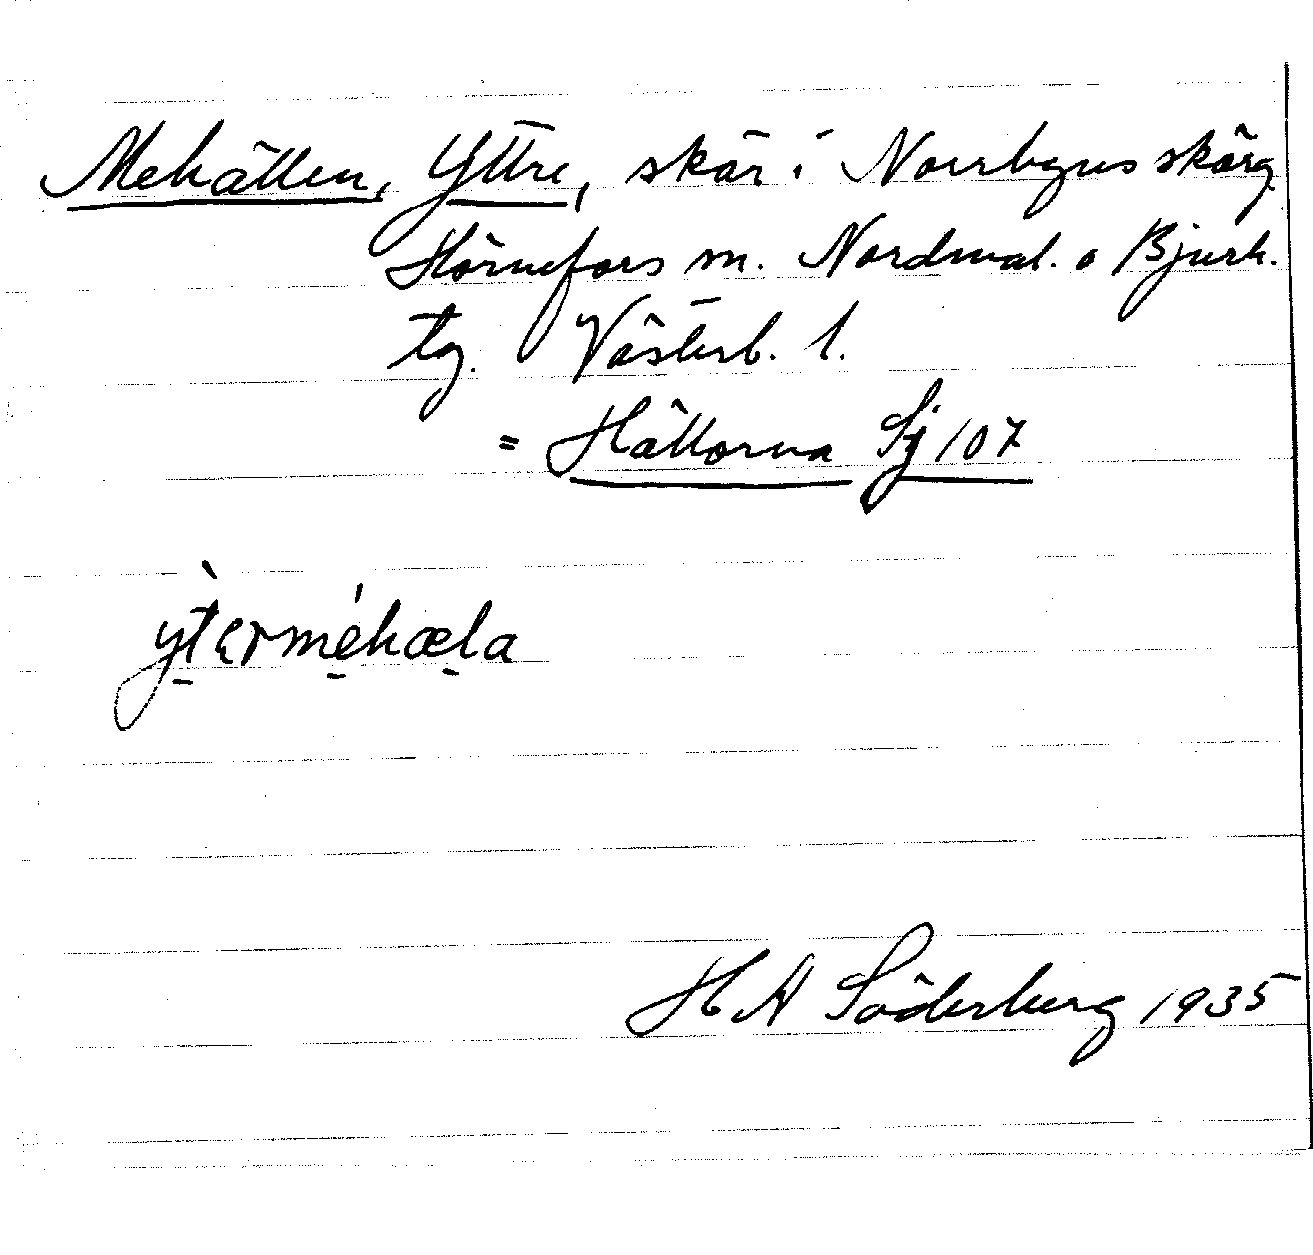 Mehällen, Yttre, skär i Norrbyns skärg.
Hörnefors sn. Nordmal. o Bjurh.
tg. Västerb. l.
= Hällorna Sj 107
yt̠̀ərmé̠hæl̠a
H A Söderberg 1935